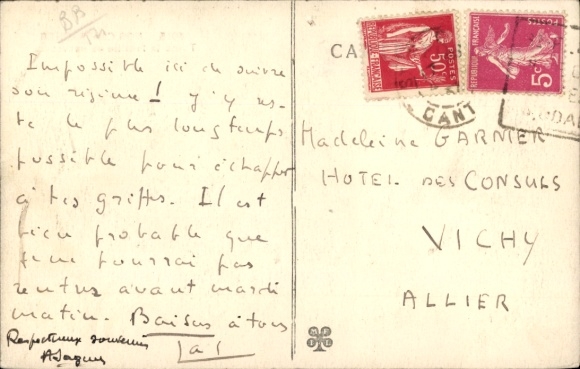 BB
CA
POSTES
50c
RÉPUBLIQUE FRANÇAISE
POSTES
5c
CANT
Impossible ici de suivre
son régime! j'y res-
te le plus longtemps
possible pour échapper
à tes griffes. Il est
bien probable que
je ne pourrai pas
rentrer avant mardi
matin. Baisers à tous
Respectueux souvenirs
Madeleine GARNIER
HOTEL DES CONSULS
VICHY
ALLIER